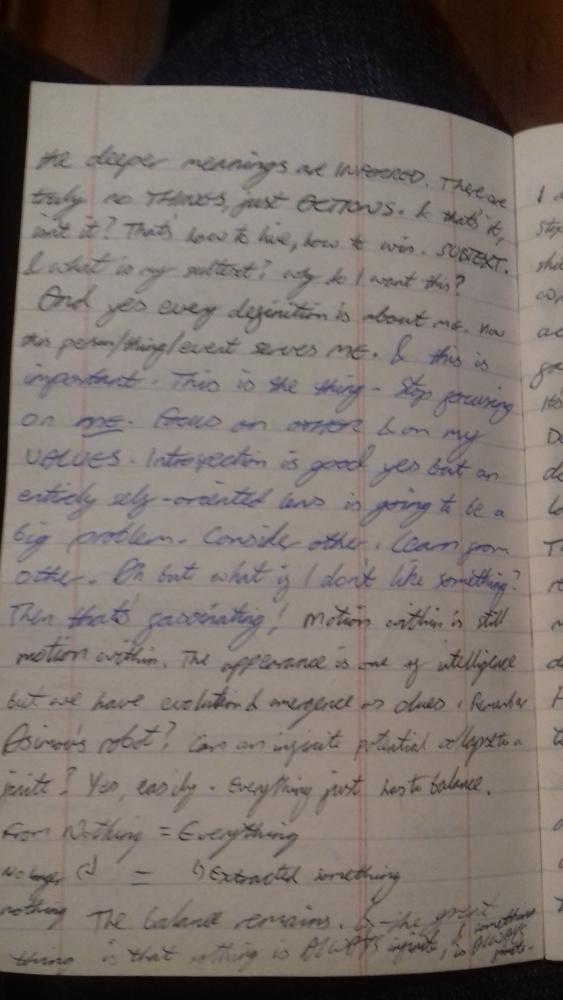 the deeper meanings are INFERRED. There are
truly no THINGS, just ACTIONS. & that's it,
isn't it? That's how to live, how to win. SUBTEXT.
& what is my subtext? why do I want this?
And yes every definition is about me. How
this person/thing/event serves ME. & this is
important. This is the thing - Stop focusing
on ME. Focus on OTHER & on my
VALUES. Introspection is good yes but an
entirely self-oriented lens is going to be a
big problem. Consider other. Learn from
other. Oh but what if I don't like something?
Then that's fascinating! Motion within is still
motion within. The appearance is one of intelligence
but we have evolution & emergence as clues. Remember
Asimov's robot? Can an infinite potential collapse to a
finite? Yes, easily. Everything just has to balance.
From Nothing = Everything
No longer = Extracted something
nothing The balance remains. & the great
thing is that nothing is ALWAYS infinite, & something is ALWAYS finite.